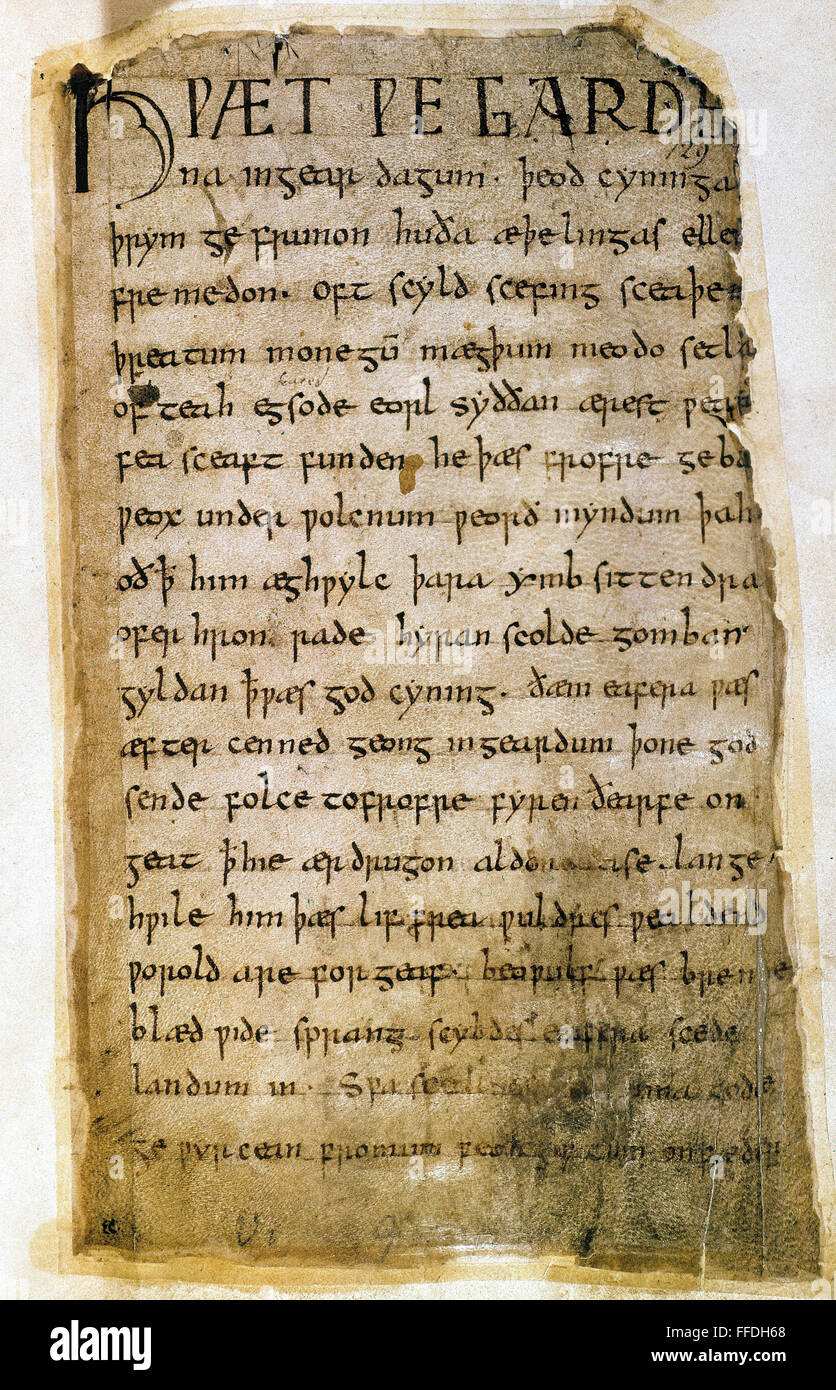 HǷÆT ǷE GARDE
129
na ingear dagum. þeod cyninga
þrym ge frunon huða æþelingas ellen
fremedon. oft scyld scefing sceaþena
þreatum monegū mægþum meodo setla
of teah egsode eorl syððan ærest ƿearð
fea sceaft funden he þæs frofre geba
ƿeox under ƿolcnum ƿeorð myndum þah
oð ꝥ him æghƿylc þara ymb sittendra
ofer hron rade hyran scolde gomban
gyldan ꝥ ƿæs god cyning. ðæm eafera ƿæs
æfter cenned geong ingeardum þone god
sende folce tofrofre fyren ðearfe on
geat ꝥ hie ær drugon aldor ase. lange
hƿile him þæs lif frea ƿuldres ƿealdend
ƿorold are for geaf. beoƿulf ƿæs breme
blæd ƿide sprang scyldes eafera scede
landum in. Sƿa sceal uma gode
ge ƿyrcean fromum feoh giftum on fæder
alamy
Image ID: FFDH68
www.alamy.com